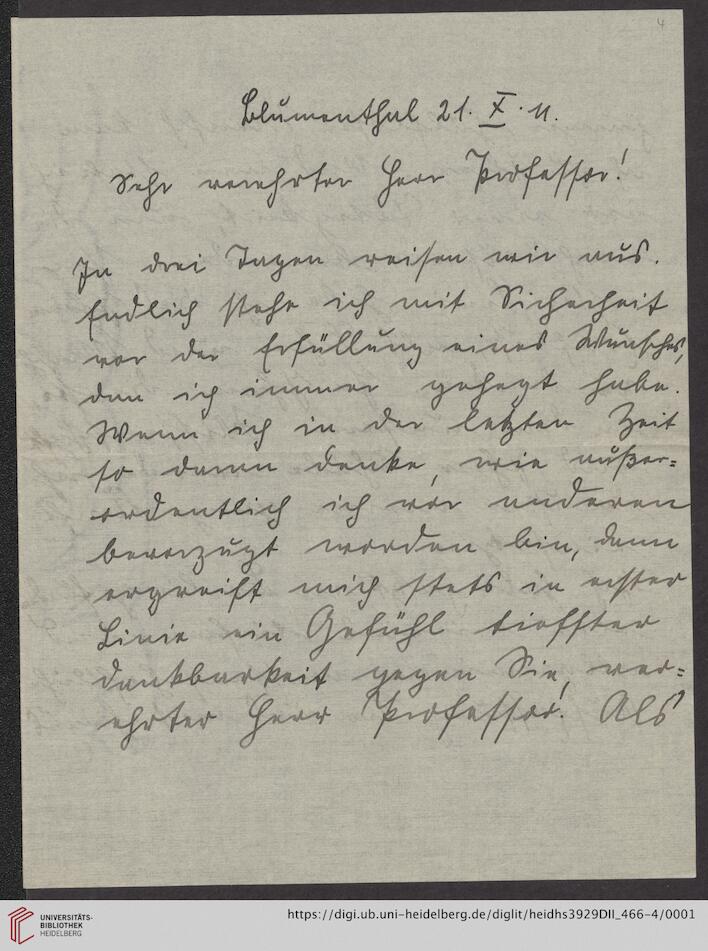 4
Blumenthal 21. X. 11.
Sehr verehrter Herr Professor!
In drei Tagen reisen wir aus.
Endlich stehe ich mit Sicherheit
vor der Erfüllung eines Wunsches,
den ich immer gehegt habe.
Wenn ich in der letzten Zeit
so daran denke, wie außer=
ordentlich ich vor anderen
bevorzugt worden bin, dann
ergreift mich stets in erster
Linie ein Gefühl tiefster
Dankbarkeit gegen Sie, ver=
ehrter Herr Professor! Als
UNIVERSITÄTS-
BIBLIOTHEK
HEIDELBERG
https://digi.ub.uni-heidelberg.de/diglit/heidhs3929DII_466-4/0001